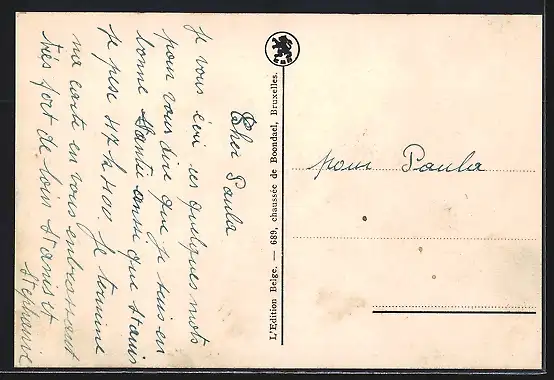 Cher Paula
je vous écri ces quelques mots
pour vous dire que je suis en
bonne Santé ainsi que Stanis
je pèse 47 k 400 je termine
ma carte en vous embrassant
très fort de loin Stanis et
Stephanne
L'Edition Belge. — 689, chaussée de Boondael, Bruxelles.
pour Paula